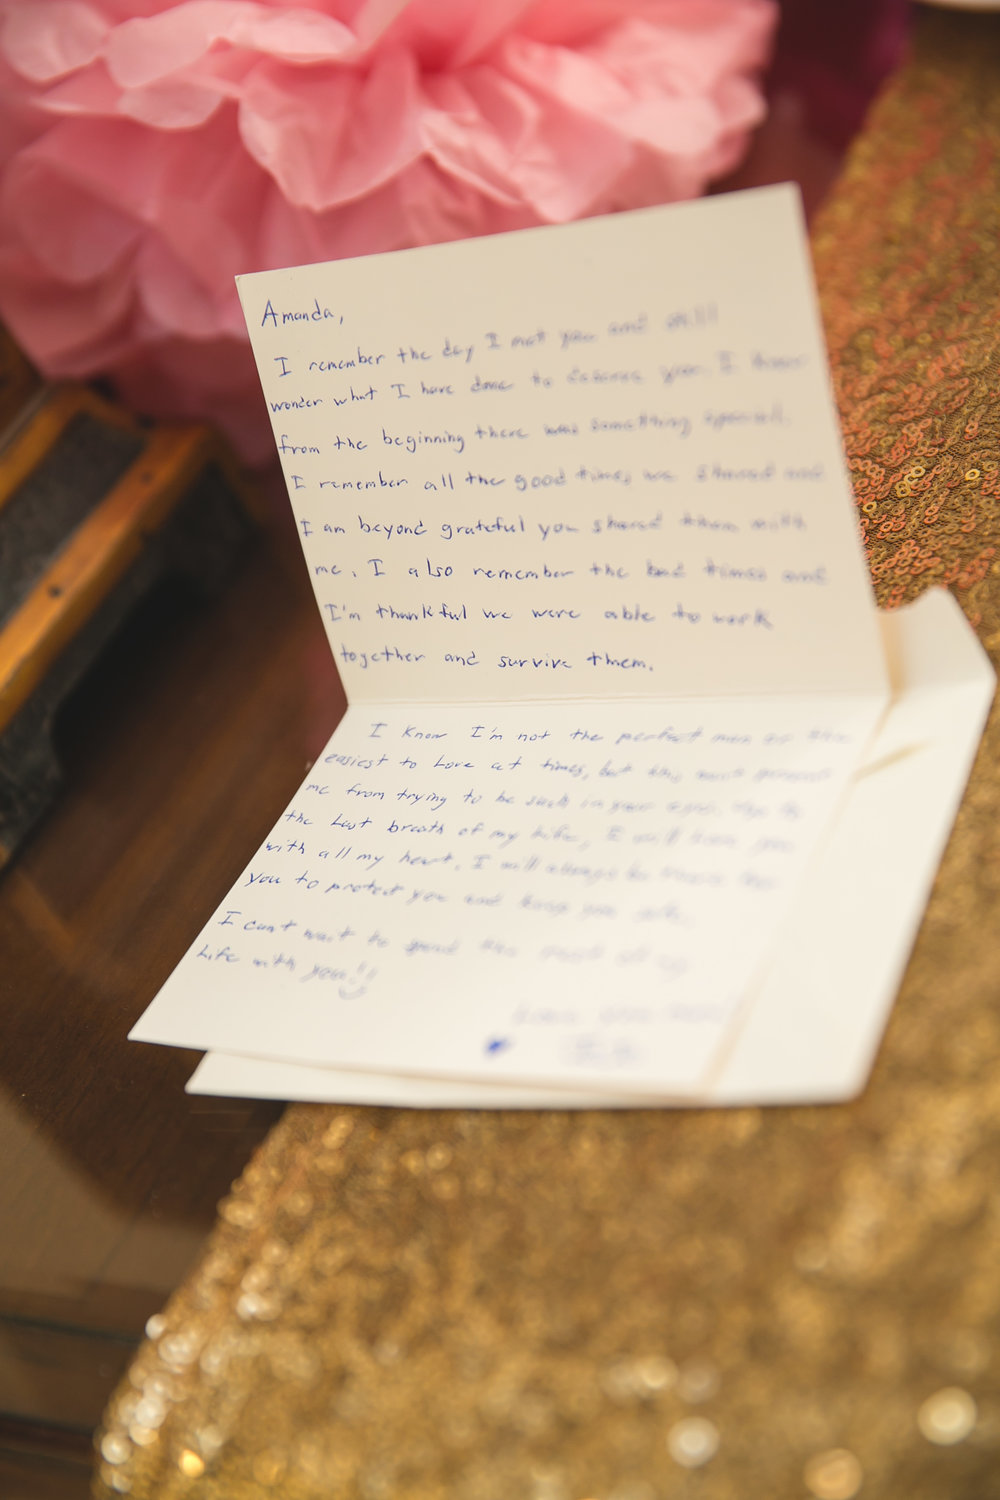 Amanda,
I remember the day I met you and still
wonder what I have done to deserve you. I knew
from the beginning there was something special.
I remember all the good times we shared and
I am beyond grateful you shared them with
me. I also remember the bad times and
I'm thankful we were able to work
together and survive them.
I know I'm not the perfect man or the
easiest to Love at times, but this won't prevent
me from trying to be such in your eyes.
the Last breath of my Life, I will love you
with all my heart. I will always be there for
you to protect you and keep you safe.
I can't wait to spend the rest of my
Life with you!!